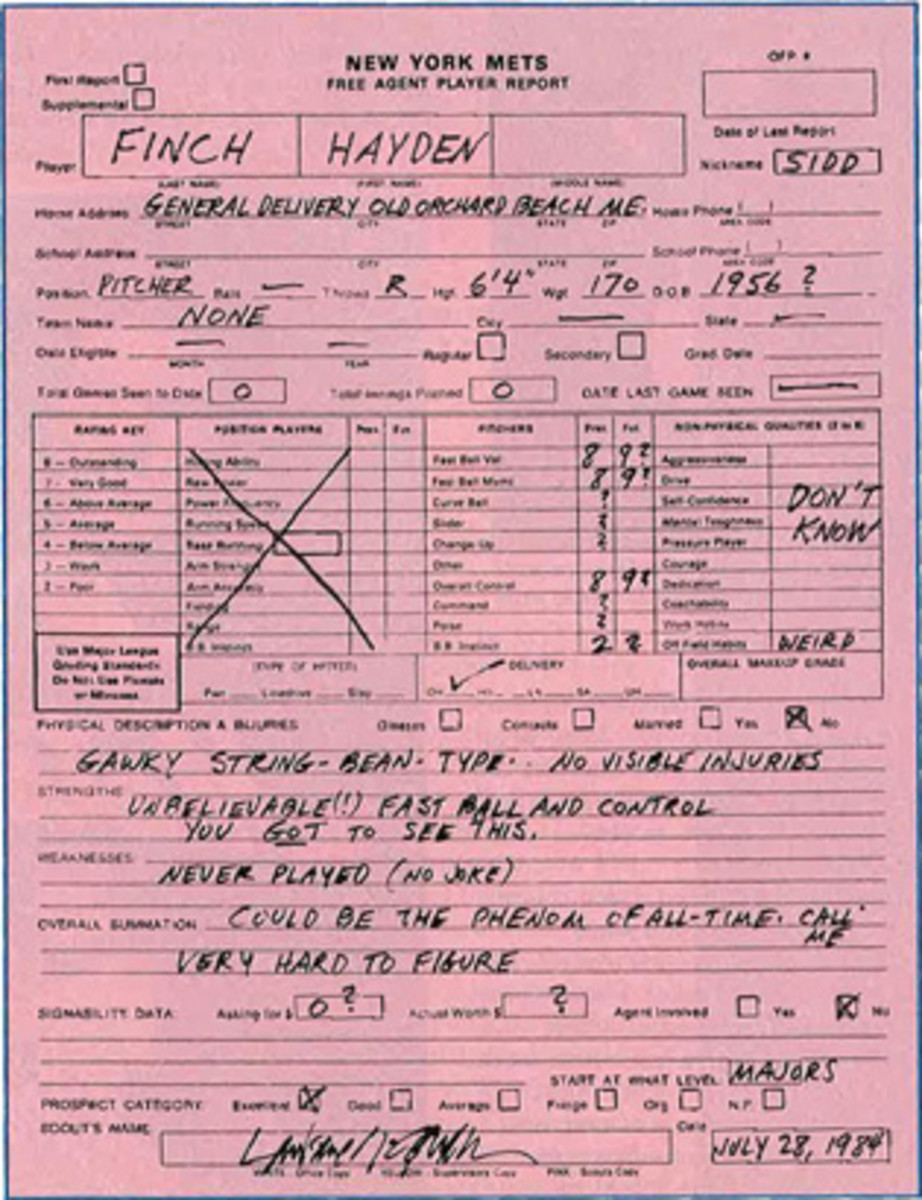 NEW YORK METS
FREE AGENT PLAYER REPORT
OFP #
First Report
Supplemental
Date of Last Report
Player FINCH HAYDEN Nickname SIDD
(LAST NAME) (FIRST NAME) (MIDDLE NAME)
Home Address GENERAL DELIVERY OLD ORCHARD BEACH ME. Home Phone ( )
STREET CITY STATE ZIP AREA CODE
School Address School Phone ( )
STREET CITY STATE ZIP AREA CODE
Position PITCHER Bats — Throws R Hgt. 6'4" Wgt. 170 D.O.B. 1956 ?
Team Name NONE City — State —
Date Eligible — — Regular Secondary Grad. Date
MONTH YEAR
Total Games Seen to Date 0 Total Innings Pitched 0 DATE LAST GAME SEEN —
RATING KEY POSITION PLAYERS Pres. Fut. PITCHERS Pres. Fut. NON-PHYSICAL QUALITIES
8 — Outstanding Hitting Ability Fast Ball Vel. 8 9? Aggressiveness
7 — Very Good Raw Power Fast Ball Mvmt. 8 9? Drive
6 — Above Average Power Frequency Curve Ball ? Self-Confidence DON'T
5 — Average Running Speed Slider ? Mental Toughness KNOW
4 — Below Average Base Running Change-Up ? Pressure Player
3 — Arm Strength Other Courage
2 — Poor Arm Accuracy Overall Control 8 9? Dedication
Fielding Command ? Coachability
Range Poise ? Work Habits
B.B. Instinct B.B. Instinct 2 ? Off Field Habits WEIRD
Use Major League
Grading Standards
Do Not Use Pluses
or Minuses
(TYPE OF HITTER) DELIVERY OVERALL MAKEUP GRADE
PHYSICAL DESCRIPTION & INJURIES Glasses Contacts Married Yes No
GAWKY STRING-BEAN-TYPE.. NO VISIBLE INJURIES
STRENGTHS UNBELIEVABLE(!) FAST BALL AND CONTROL
YOU GOT TO SEE THIS.
WEAKNESSES:
NEVER PLAYED (NO JOKE)
OVERALL SUMMATION COULD BE THE PHENOM OF ALL-TIME. CALL
ME
VERY HARD TO FIGURE
SIGNABILITY DATA: Asking for $ 0 ? Actual Worth $ ? Agent Involved Yes No
START AT WHAT LEVEL: MAJORS
PROSPECT CATEGORY: Excellent Good Average Fringe Org. N.P.
SCOUT'S NAME Date JULY 28, 1984
WHITE - Office Copy YELLOW - Supervisors Copy PINK - Scouts Copy